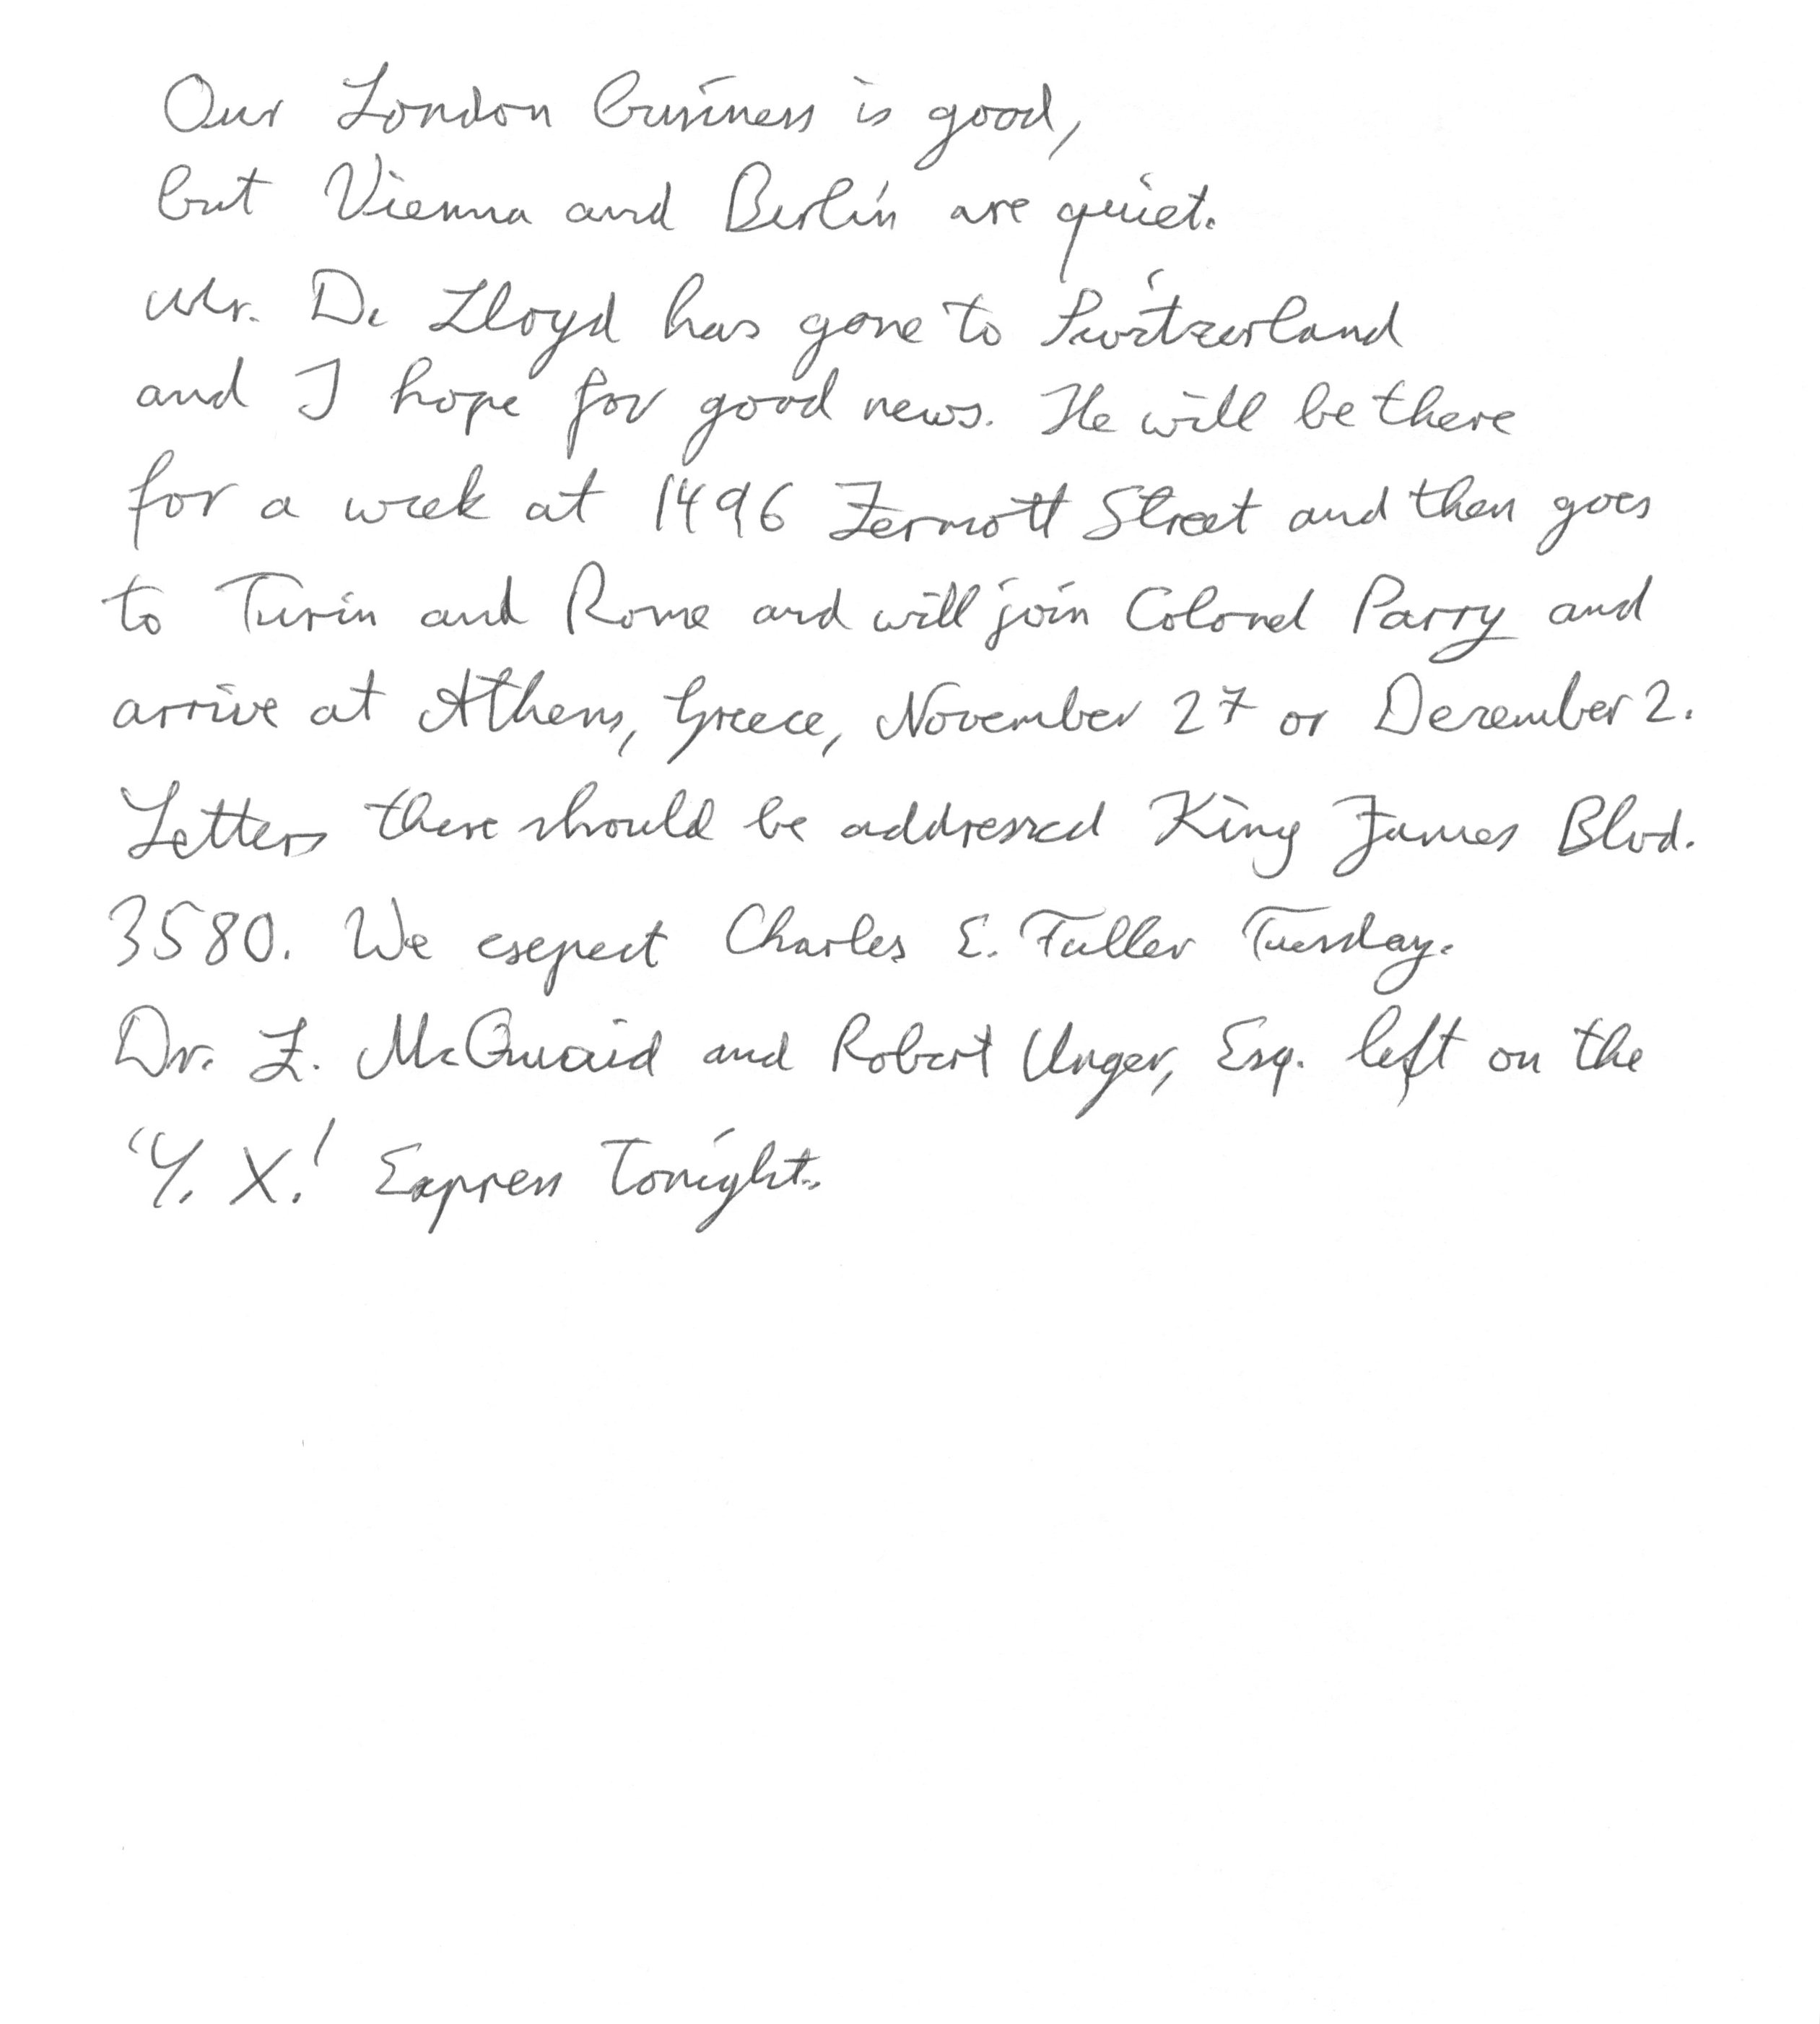 Our London business is good,
but Vienna and Berlin are quiet.
Mr. D. Lloyd has gone to Switzerland
and I hope for good news. He will be there
for a week at 1496 Zermott Street and then goes
to Turin and Rome and will join Colonel Parry and
arrive at Athens, Greece, November 27 or December 2.
Letters there should be addressed King James Blvd.
3580. We expect Charles E. Fuller Tuesday.
Dr. L. McQuaid and Robert Unger, Esq. left on the
'Y. X.' Express Tonight.